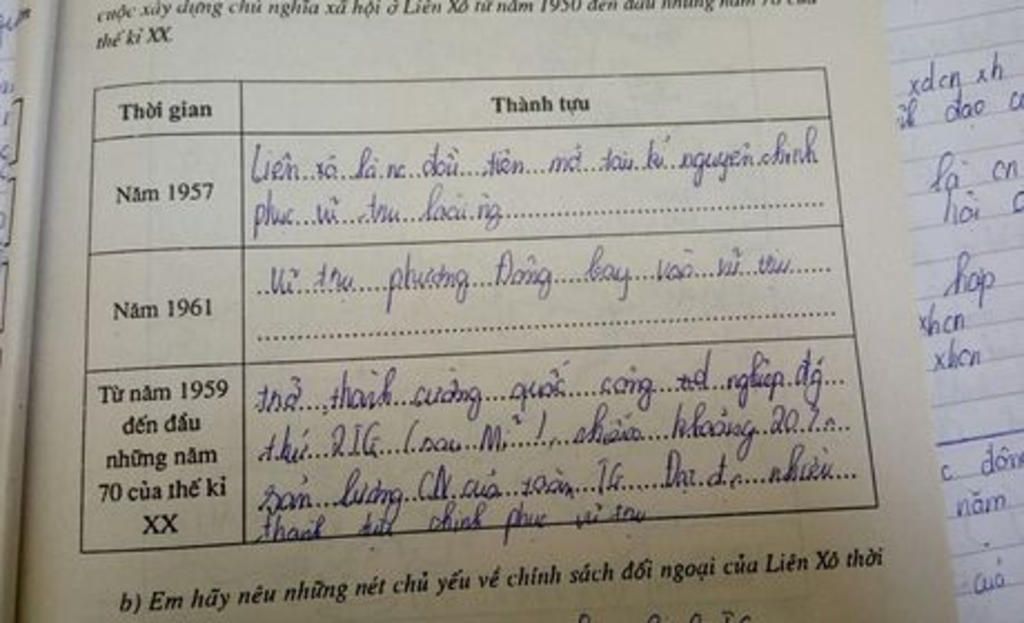 cuộc xây dựng chủ nghĩa xã hội ở Liên Xô từ năm 1950 đến đầu những năm 70 của
thế kỉ XX.
Thời gian
Thành tựu
Năm 1957
Liên xô là nc đầu tiên mở đầu kỉ nguyên chinh
phục vũ trụ loài ng
Năm 1961
Vũ trụ phương Đông bay vào vũ trụ
Từ năm 1959
đến đầu
những năm
70 của thế kỉ
XX
trở thành cường quốc công nghiệp đg
thứ 2 TG (sau Mĩ), chiếm khoảng 20%
sản lượng CN của toàn TG. Đạt đc nhiều
thành tựu chinh phục vũ trụ
b) Em hãy nêu những nét chủ yếu về chính sách đối ngoại của Liên Xô thời
xdcn xh
đao
là cn
hội
hợp
xhcn
xhcn
c đông
năm
của